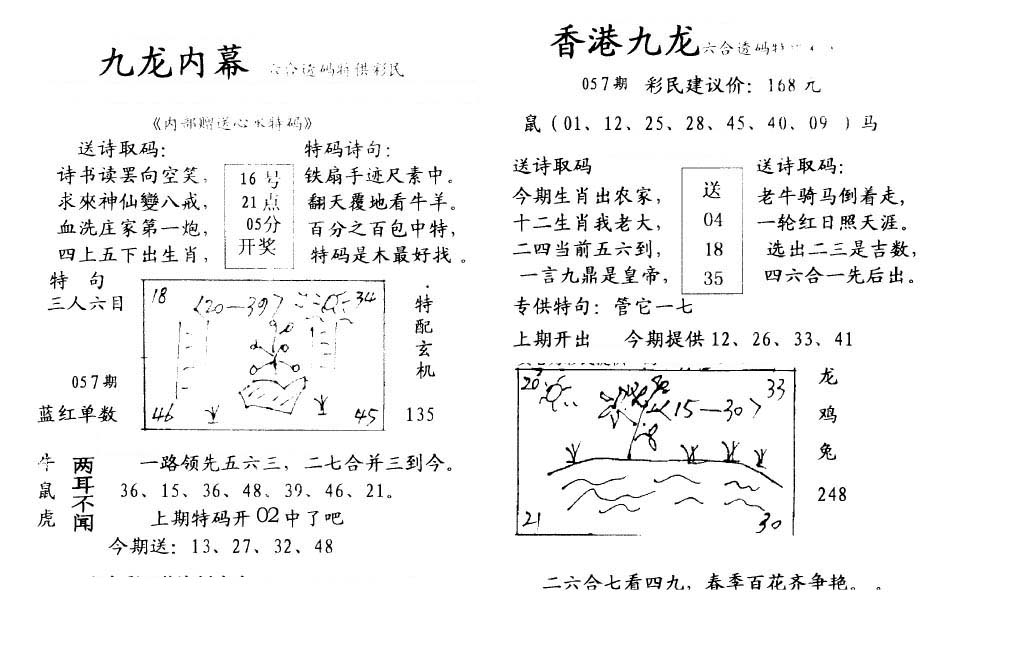 九龙内幕 六合透码特供彩民
《内部赠送心水特码》
送诗取码：
诗书读罢向空笑，
求來神仙變八戒，
血洗庄家第一炮，
四上五下出生肖，
16 号
21 点
05分
开奖
特码诗句：
铁扇手迹尺素中。
翻天覆地看牛羊。
百分之百包中特，
特码是木最好找。
特 句
三人六目
057期
蓝红单数
18
<20—39>
34
46
45
特配玄机
135
牛
鼠
虎
两耳不闻
一路领先五六三，二七合并三到今。
36、15、36、48、39、46、21。
上期特码开 02 中了吧
今期送：13、27、32、48
香港九龙 六合透码特
057期 彩民建议价：168 元
鼠（01、12、25、28、45、40、09 ）马
送诗取码
今期生肖出农家，
十二生肖我老大，
二四当前五六到，
一言九鼎是皇帝，
送
04
18
35
送诗取码：
老牛骑马倒着走，
一轮红日照天涯。
选出二三是吉数，
四六合一先后出。
专供特句：管它一七
上期开出 今期提供 12、26、33、41
20
<15—30>
33
21
30
龙
鸡
兔
248
二六合七看四九，春季百花齐争艳。。